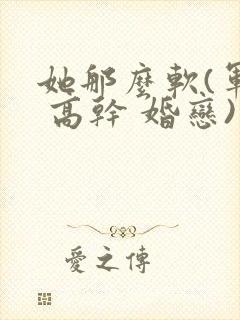 她那麼軟(軍
高幹 婚戀)
愛之傳